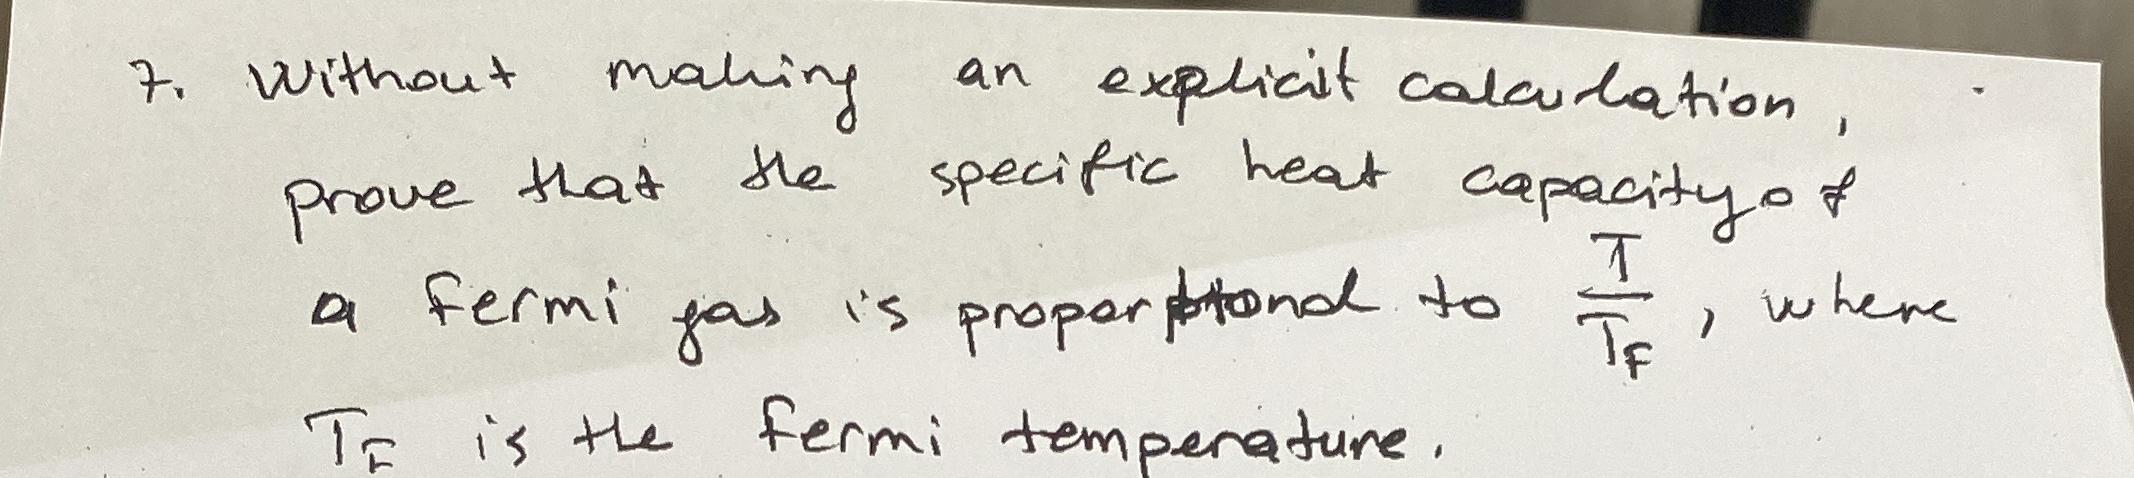 7. Without making an explicit calculation,
prove that the specific heat capacity of
a Fermi gas is proportional to T/T_F, where
T_F is the Fermi temperature.